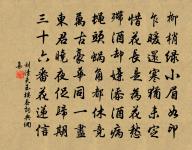 柳梢綠小眉如印
乍暖還寒猶未定
惜花長是為花愁
殢酒卻嫌添酒病
蠅頭蝸角都休競
萬古豪華同一盡
東君曉夜促歸期
三十六番花遞信
劉清夫玉樓春